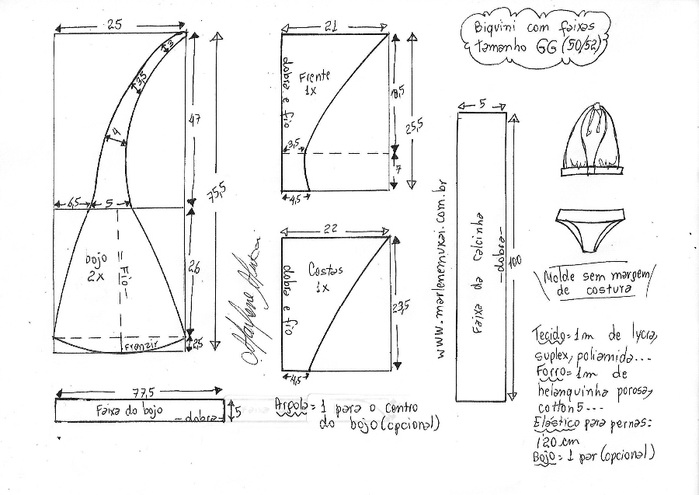 Biquini com faixas
tamanho GG (50/52)
25
3
3,5
4
47
75,5
6,5
5
bojo
2x
Fio
26
Franzir
2,5
77,5
Faixa do bojo
dobra
5
21
dobra e fio
Frente
1x
18,5
25,5
3,5
7
4,5
22
dobra e fio
Costas
1x
23,5
4,5
Argola = 1 para o centro
do bojo (opcional)
www.marlenemukai.com.br
5
Faixa da calcinha
dobra
100
Molde sem margem
de costura
Tecido = 1m de lycra,
suplex, poliamida...
Forro = 1m de
helanquinha porosa,
cotton 5...
Elástico para pernas:
120 cm
Bojo = 1 par (opcional)